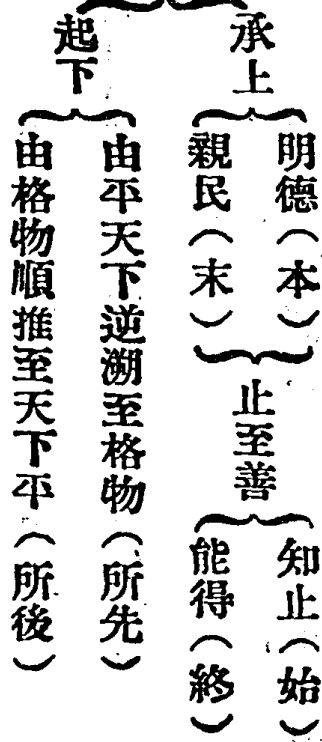 承上
明德（本）
親民（末）
止至善
知止（始）
能得（終）
起下
由平天下逆溯至格物（所先）
由格物順推至天下平（所後）